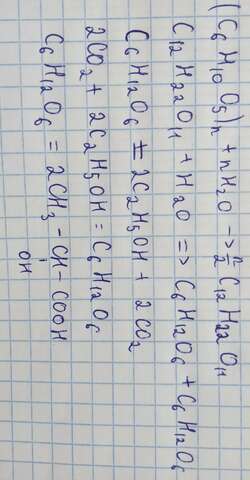 (C₆H₁₀O₅)n + nH₂O -> n/2 C₁₂H₂₂O₁₁
C₁₂H₂₂O₁₁ + H₂O => C₆H₁₂O₆ + C₆H₁₂O₆
C₆H₁₂O₆ ± 2C₂H₅OH + 2CO₂
2CO₂ + 2C₂H₅OH = C₆H₁₂O₆
C₆H₁₂O₆ = 2CH₃ - CH - COOH
OH